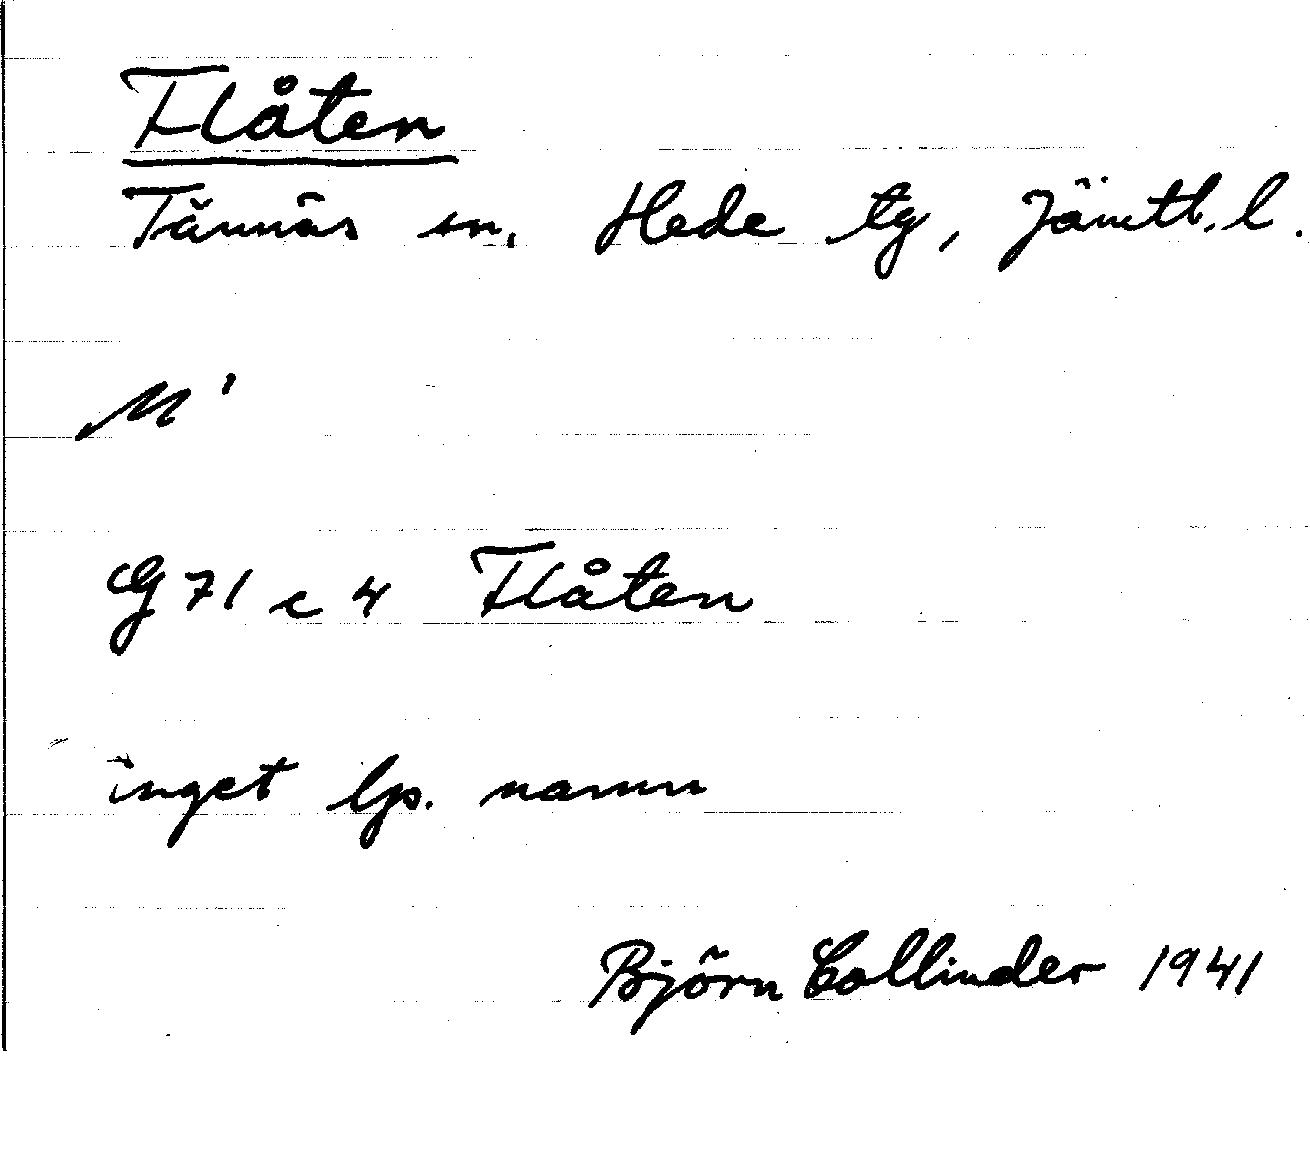 Flåten
Tännäs sn. Hede tg, Jämtl. l.
M'
G 71 c 4 Flåten
inget lp. namn
Björn Collinder 1941